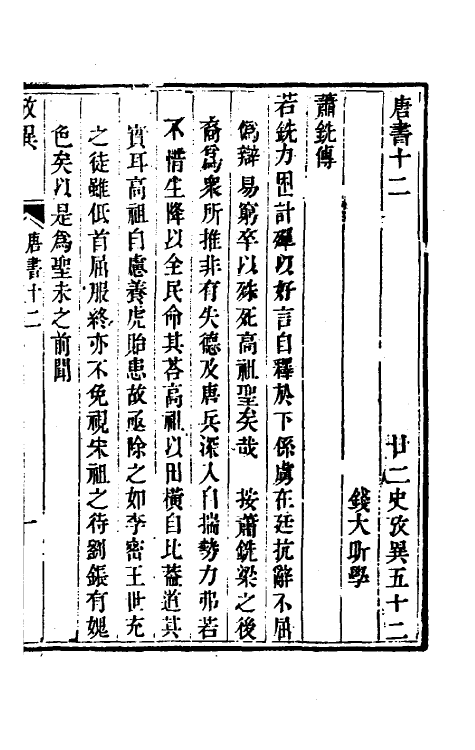 唐書十二　廿二史攷異五十二
錢大昕學
蕭銑傳
若銑力困計殫以好言自釋於下係虜在廷抗辭不屈
僞辯易窮卒以殊死高祖聖矣哉　按蕭銑梁之後
裔爲衆所推非有失德及唐兵深入自揣勢力弗若
不惜生降以全民命其荅高祖以田橫自比葢道其
實耳高祖自慮養虎貽患故亟除之如李密王世充
之徒雖低首屈服終亦不免視宋祖之待劉鋹有媿
色矣以是爲聖未之前聞
攷異　唐書十二　一